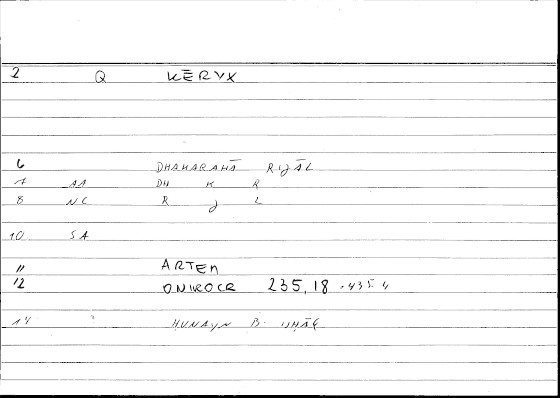 2 Q KĒRYX
6 DHAKARAHĀ RIJĀL
7 AA DH K R
8 NC R J L
10 SA
11 ARTEM
12 ONIROCR 235,18 - 435 4
14 ḤUNAYN B. ISḤĀQ